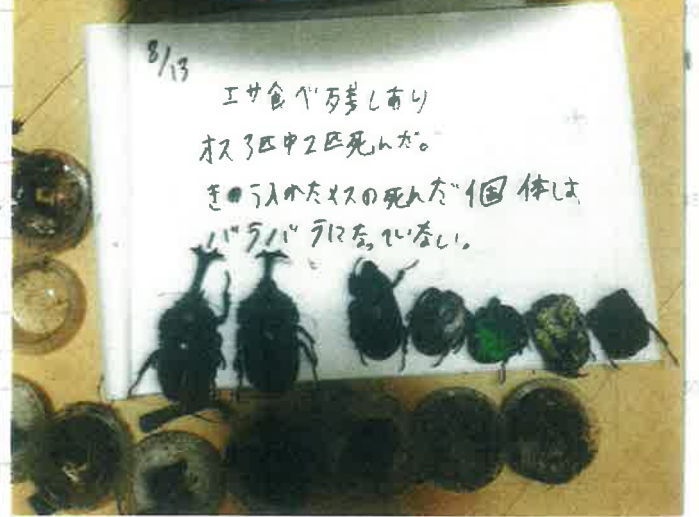 8/13
エサ食べ残しあり
オス3匹中2匹死んだ。
きのう入れたメスの死んだ個体は
バラバラになっていない。